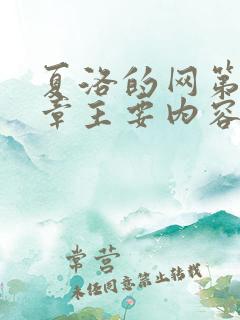 夏洛的网第
章主要内容
常营
未经同意禁止转载